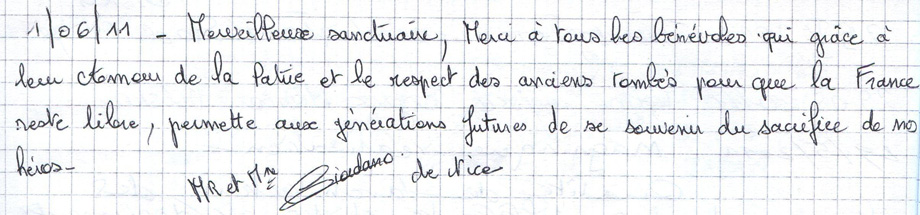 1/06/11 - Merveilleuse sanctuaire, Merci à tous les bénévoles qui grâce à
leur Honneur de la Patrie et le respect des anciens tombés pour que la France
reste libre, permette aux générations futures de se souvenir du sacrifice de nos
héros-
MR et Mme Giordano de Nice